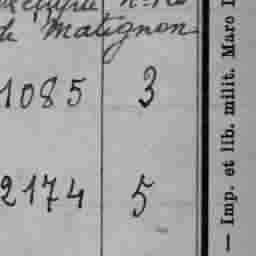 de Matignon
1085 3
2174 5
— Imp. et lib. milit. Marc